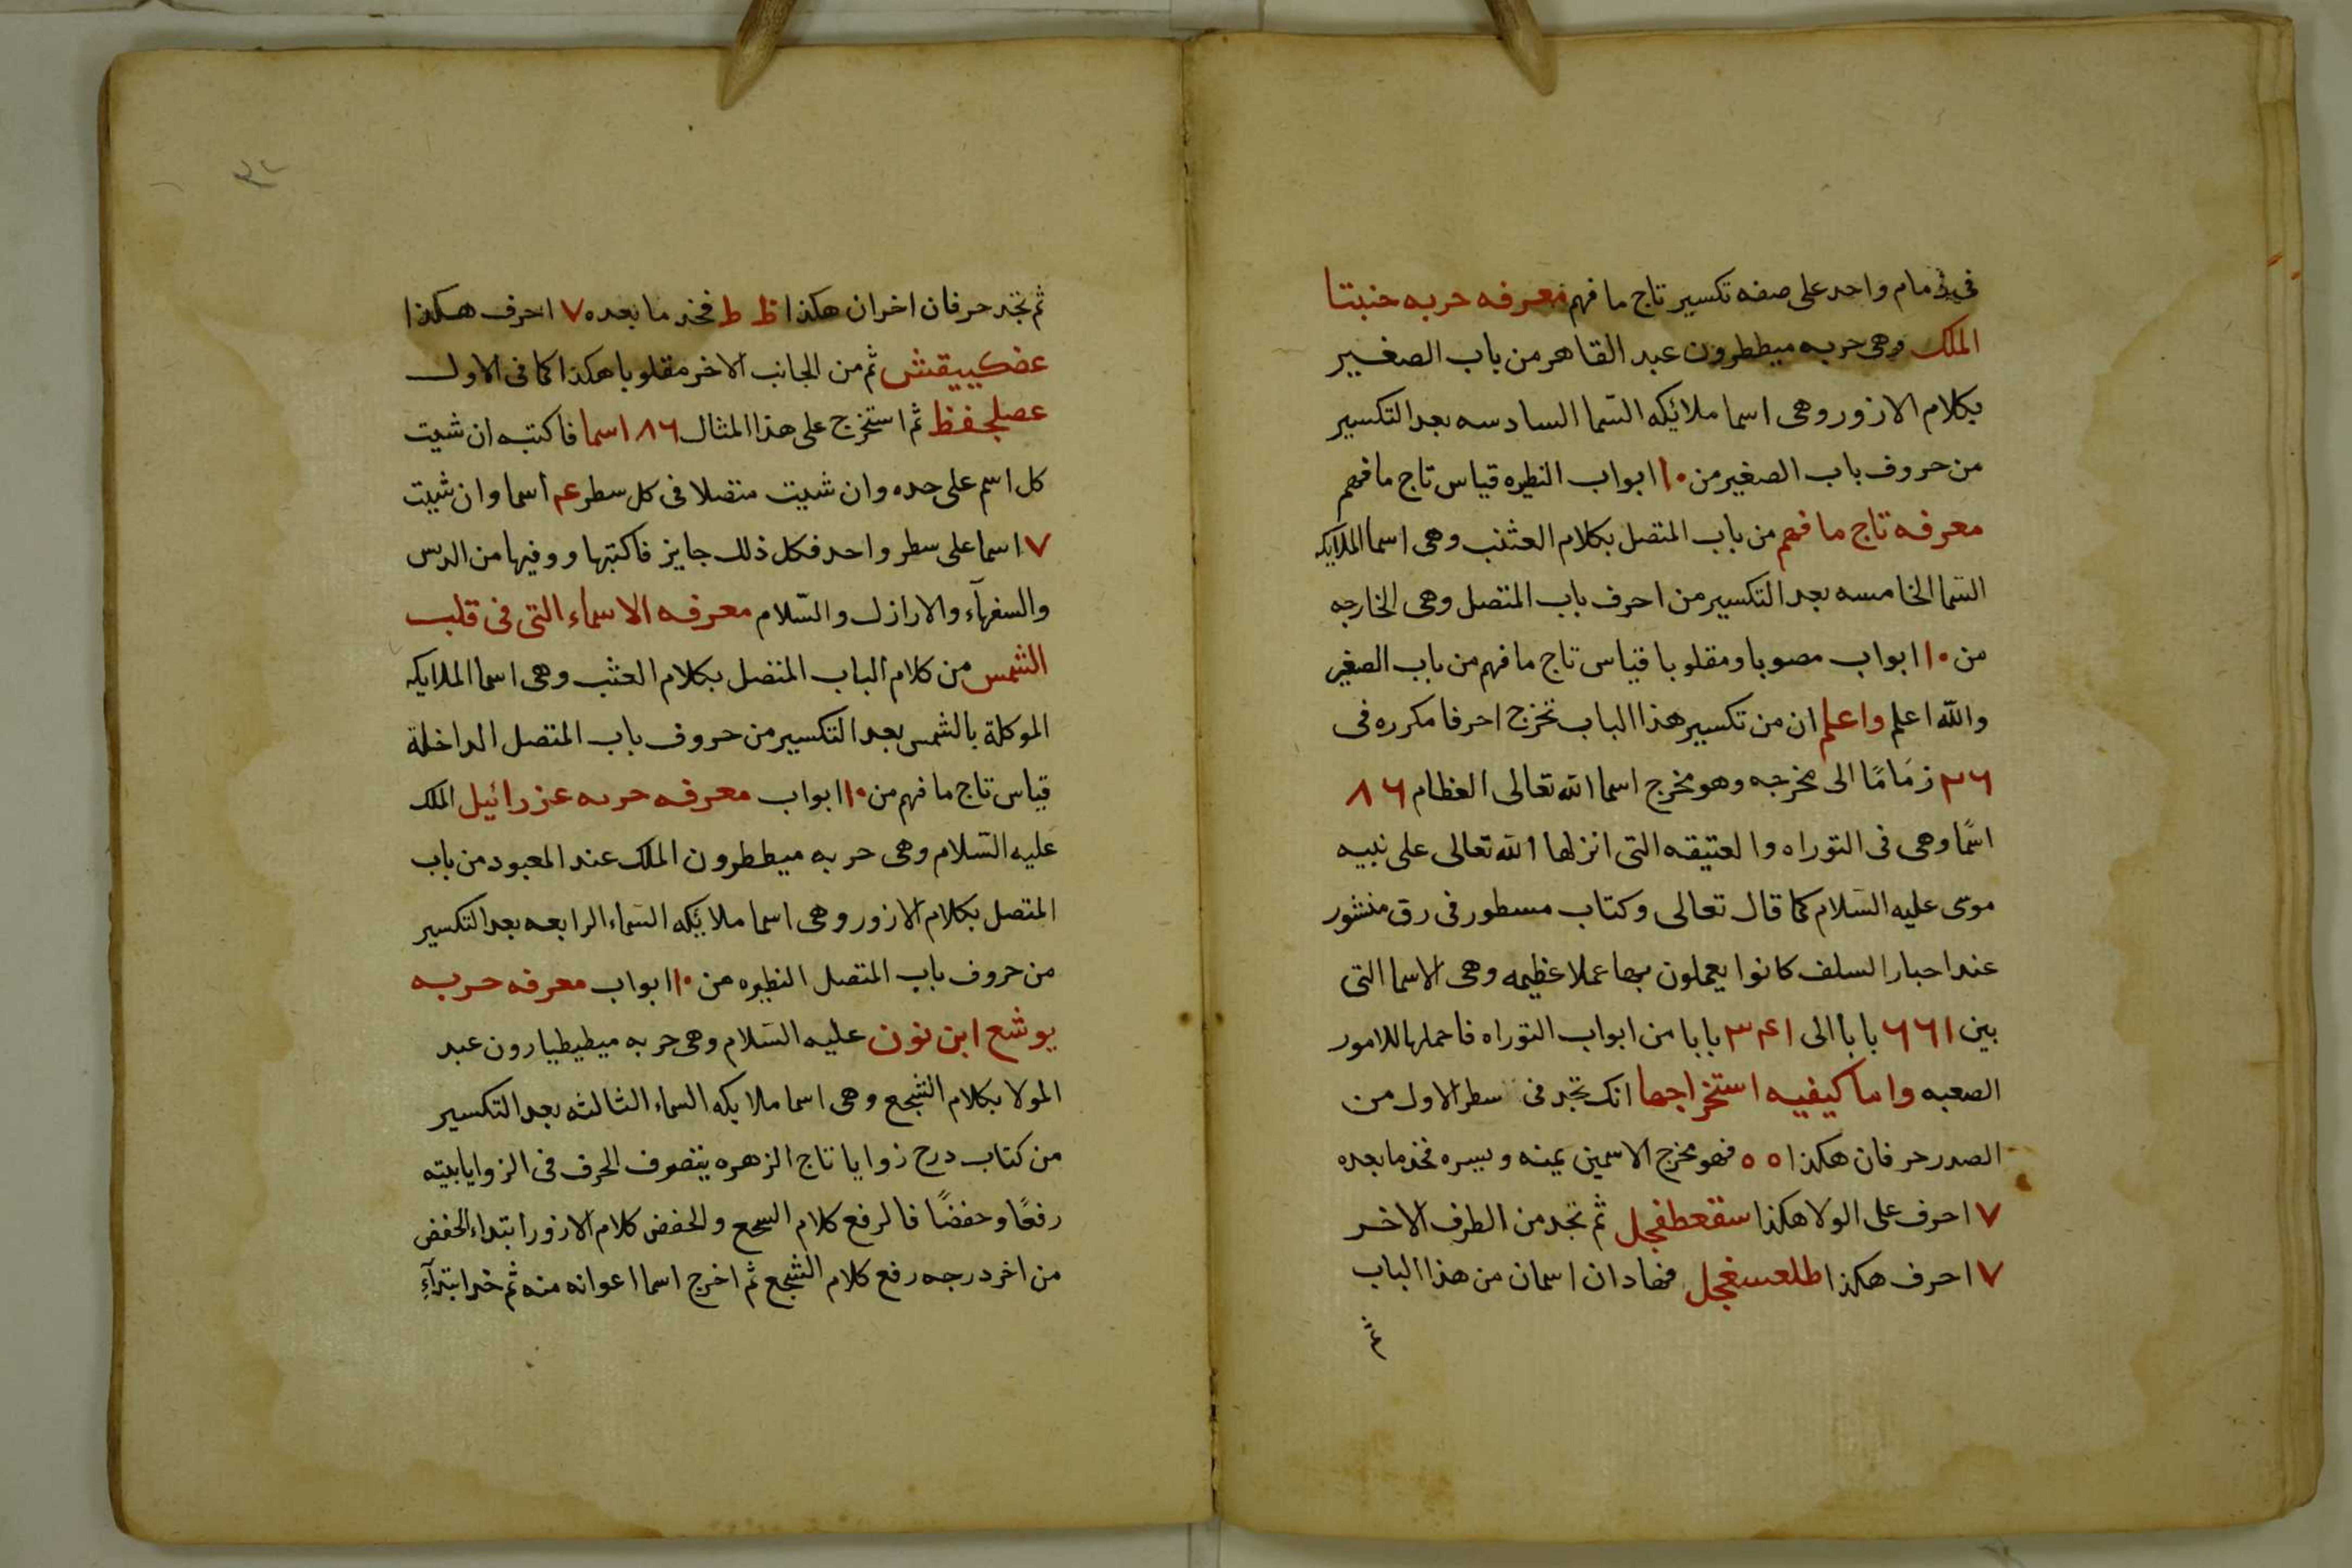 في زمام واحد على صفه تكسير تاج ما فهم معرفه حربه حنبتا
الملك وهى حربه ميططرون عبد القاهر من باب الصغير
بكلام الازور وهى اسما ملائيكه السّما السادسه بعد التكسير
من حروف باب الصغير من ١٠ ابواب النظيره قياس تاج ما فهم
معرفه تاج ما فهم من باب المتصل بكلام العثنب وهى اسما الملايكه
السّما الخامسه بعد التكسير من احرف باب المتصل وهى الخارجه
من ١٠ ابواب مصوبا ومقلوبا قياس تاج ما فهم من باب الصغير
والله اعلم واعلم ان من تكسير هذا الباب تخرج احرفا مكرره فى
٢٦ زمَامًا الى مخرجه وهو مخرج اسما الله تعالى العظام ٨٦
اسمًا وهى فى التوراه والعتيقه التى انزلها الله تعالى على نبيه
موسى عليه السّلام كما قال تعالى وكتاب مسطور فى رق منشور
عند احبار السلف كانوا يعملون بها عملا عظيمه وهى الاسما التى
بين ٦٦١ بابا الى ٣٤١ بابا من ابواب التوراه فاحملها للامور
الصعبه واما كيفيه استخراجها انك تجد فى سطر الاول من
الصدر حرفان هكذا ه ه فهو مخرج الاسمين يمينه ويسره فخذ ما بعده
٧ احرف على الولا هكذا سقعطفجل ثم تجد من الطرف الاخر
٧ احرف هكذا طلعسغجل فهادان اسمان من هذا الباب
ثم
٣٢
ثم تجد حرفان اخران هكذا ظ ط فخذ ما بعده ٧ احرف هكذا
عضكييقش ثم من الجانب الاخر مقلوبا هكذا كما فى الاول
عصلجفظ ثم استخرج على هذا المثال ٨٦ اسما فاكتبه ان شيت
كل اسم على حده وان شيت متصلا فى كل سطر ع‍ اسما وان شيت
٧ اسما على سطر واحد فكل ذلك جايز فاكتبها ووفيها من الدس
والسفهآء والارازل والسّلام معرفه الاسماء التى فى قلب
الشمس من كلام الباب المتصل بكلام العثب وهى اسما الملايكه
الموكلة بالشمس بعد التكسير من حروف باب المتصل الداخلة
قياس تاج ما فهم من ١٠ ابواب معرفه حربه عزرائيل الملك
عليه السّلام وهى حربه ميططرون الملك عند المعبود من باب
المتصل بكلام الازور وهى اسما ملائيكه السّماء الرابعه بعد التكسير
من حروف باب المتصل النظيره من ١٠ ابواب معرفه حربه
يوشع ابن نون عليه السّلام وهى حربه ميطيطيارون عبد
المولا بكلام الشجع وهى اسما ملايكه السماء الثالثه بعد التكسير
من كتاب درج زوايا تاج الزهره يتصرف الحرف فى الزوايا بيته
رفعًا وخفضًا فالرفع كلام السجع والخفض كلام الازور ابتداء الخفض
من اخر درجه رفع كلام الشجع ثم اخرج اسما اعوانه منه ثم خد ابتدآءِ